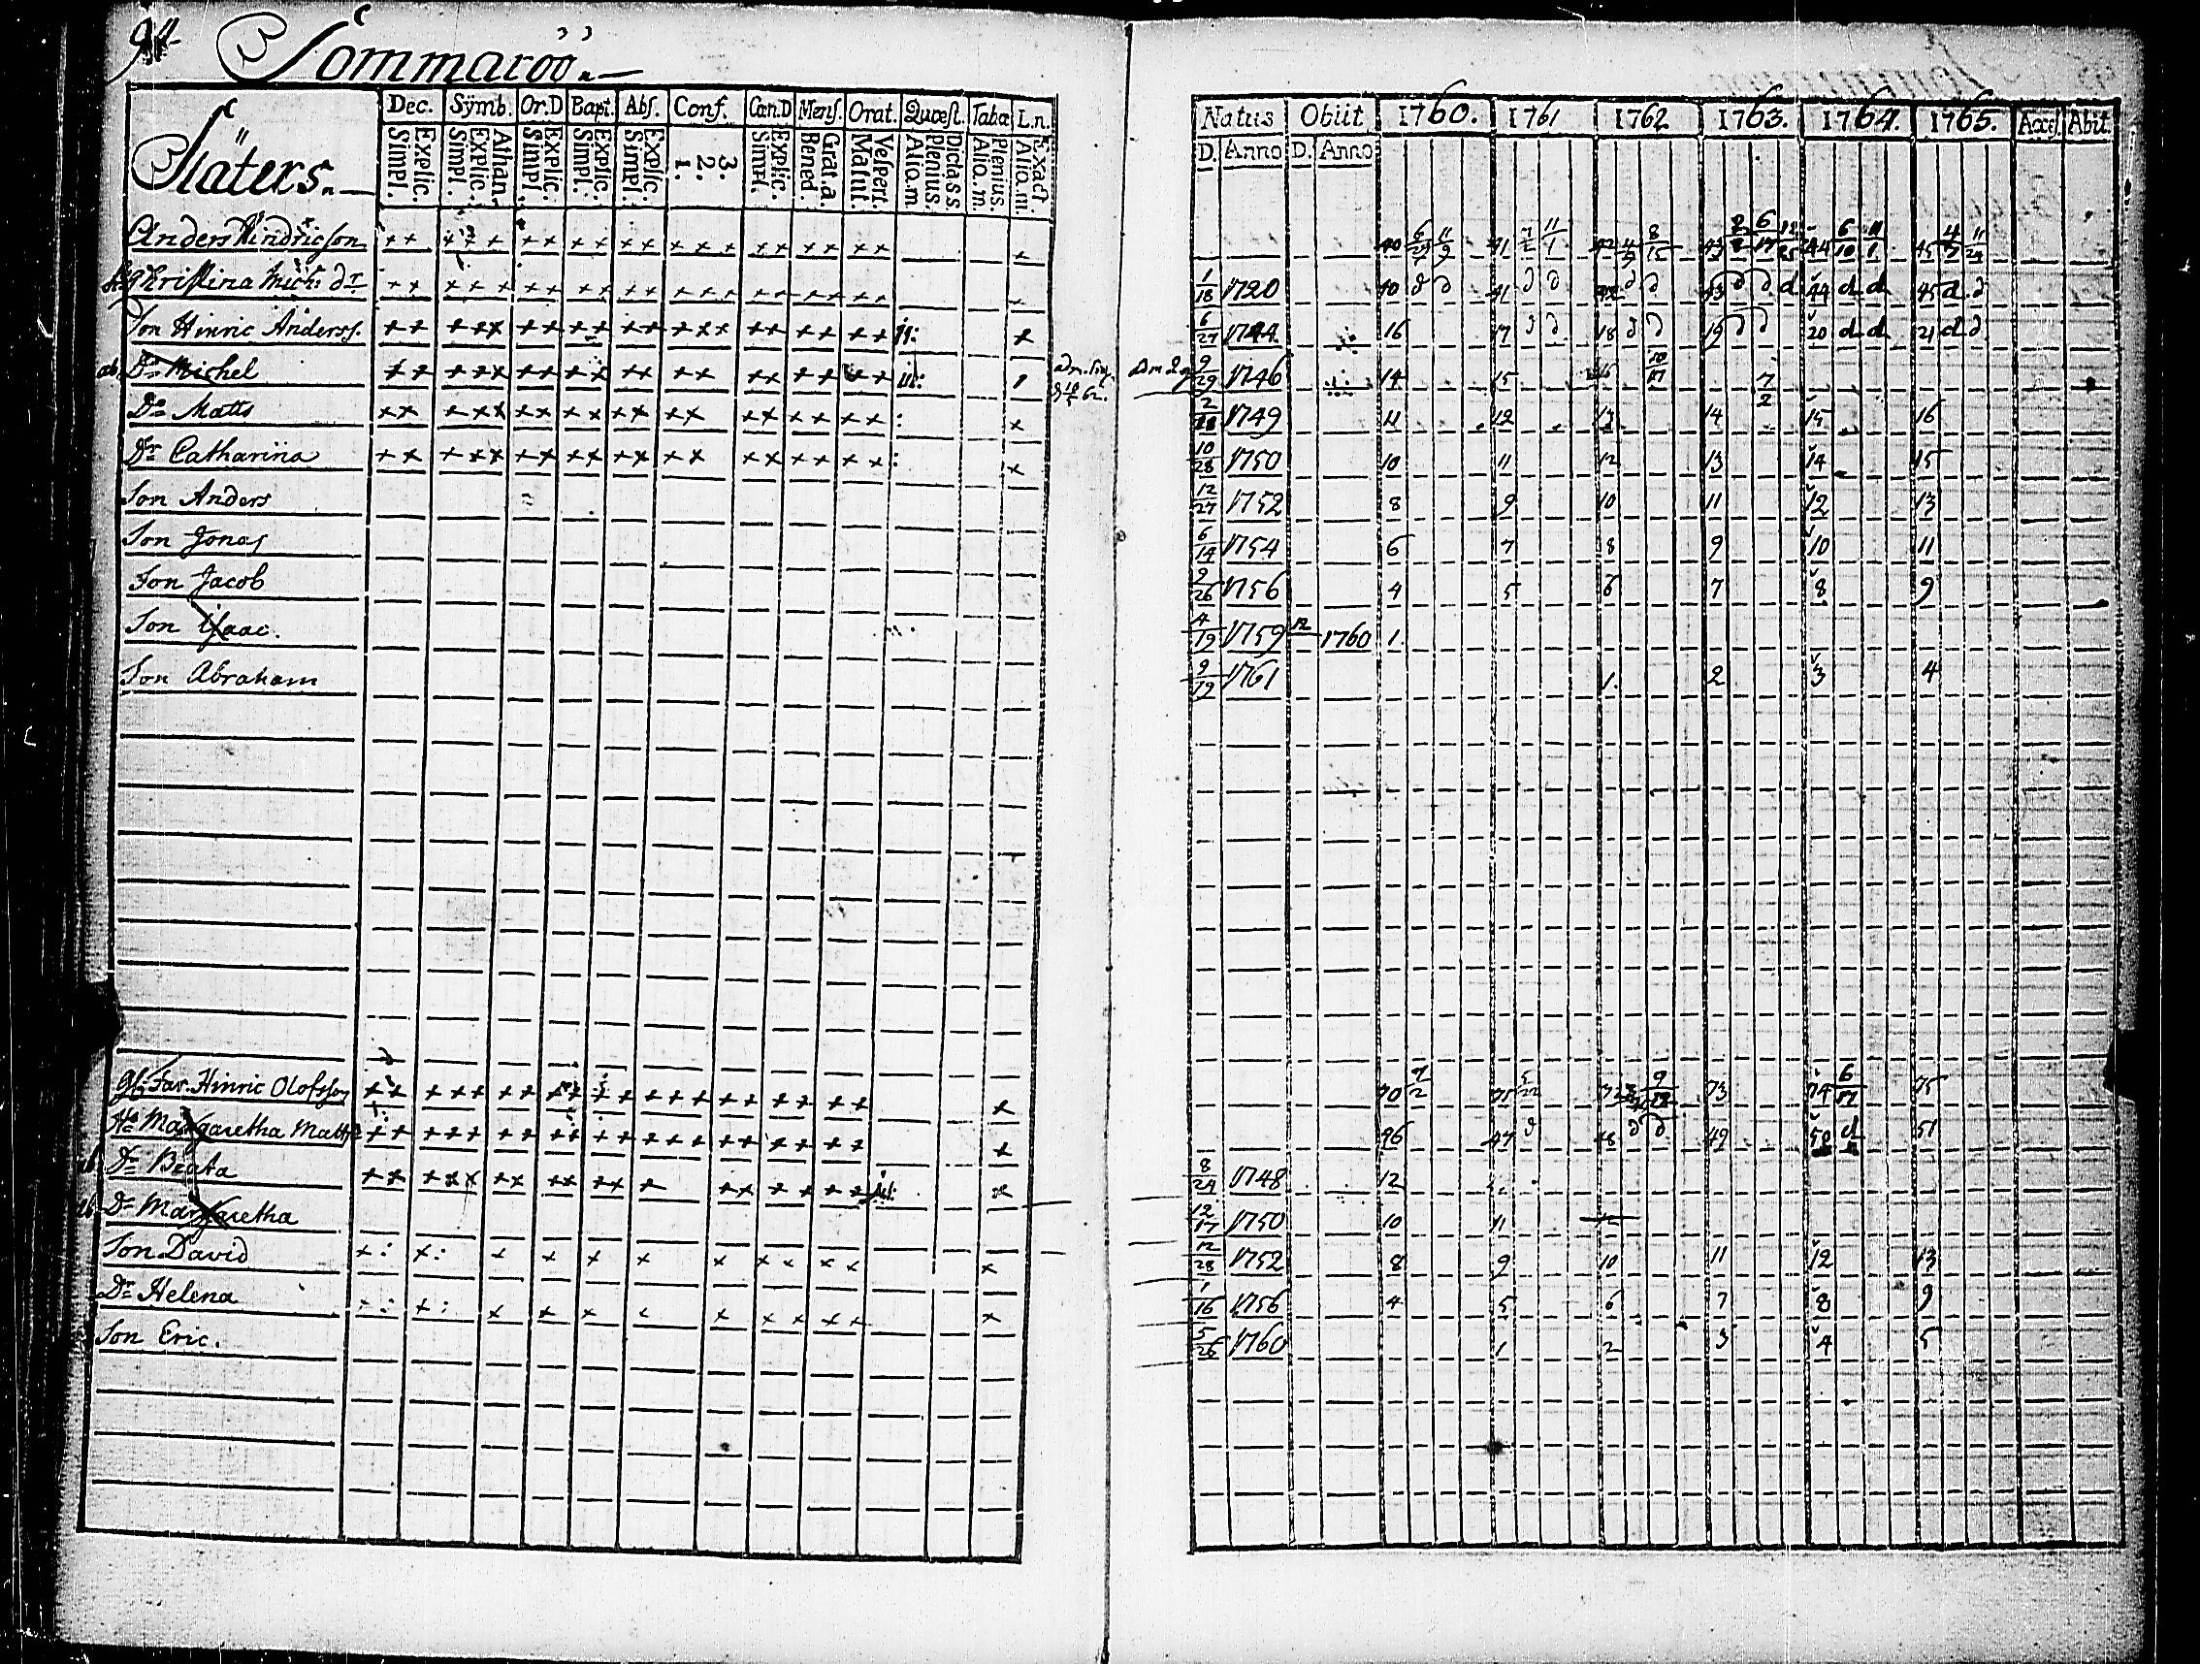 94 Sommaröö.
Släters.
Dec. Symb. Or.D Bapt. Abs. Conf. Cœn.D Mens. Orat. Quæst. Taba L.n.
Explic. Simpl. Athan. Explic. Simpl. Explic. Simpl. Explic. Simpl. Explic. Simpl. 3. 2. 1. Explic. Simpl. Grat.a. Bened. Vespert. Matut. Dicta S.S. Plenius. Alio.m. Plenius. Alio.m. Exact. Alio.m.
Natus Obiit 1760. 1761 1762 1763. 1764. 1765. Acces. Abit.
D. Anno D. Anno
Anders Hindricson ++ +++ ++ ++ ++ +++ ++ ++ ++ + 40 6/29 11/9 41 11/1 42 8/15 43 6/17 44 6/10 11/1 45
Christina Mich: dr ++ +++ ++ ++ ++ +++ ++ ++ ++ + 1/18 1720 40 d d 41 d d d d 43 d d d 44 d d 45 d d
Son Hinric Anderss. ++ +++ ++ ++ ++ +++ ++ ++ ++ + 6/27 1744 16 17 d d 18 d d 19 d d 20 d d 21 d d
ab Do Michel ++ +++ ++ ++ ++ ++ ++ ++ ++ 9/29 1746 14 15 16 10/17
Do Matts ++ +++ ++ ++ ++ ++ ++ ++ ++ : + 2/28 1749 11 12 13 14 15 16
Dr Catharina ++ +++ ++ ++ ++ ++ ++ ++ ++ : + 10/28 1750 10 11 12 13 14 15
Son Anders 12/27 1752 8 9 10 11 12 13
Son Jonas 6/14 1754 6 7 8 9 10 11
Son Jacob 9/26 1756 4 5 6 7 8 9
Son Isaac. 4/19 1759 12 1760 1.
Son Abraham 9/12 1761 1. 2 3 4
Far. Hinric Olofsson ++ +++ ++ ++ ++ +++ ++ ++ ++ + 70 7/2 71 5/22 72 73 74 6/17 75
Hu Margaretha Matts ++ +++ ++ ++ ++ +++ ++ ++ ++ + 47 d 48 d d 49 50 d 51
ab Dr Beata ++ +++ ++ ++ ++ + ++ ++ ++ + 8/24 1748 12
ab Dr Margaretha 12/17 1750 10 11
Son David +: +: + + + + + ++ ++ + 12/28 1752 8 9 10 11 12 13
Dr Helena +: +: + + + + + ++ ++ + 1/16 1756 4 5 6 7 8 9
Son Eric. 5/26 1760 1 2 3 4 5